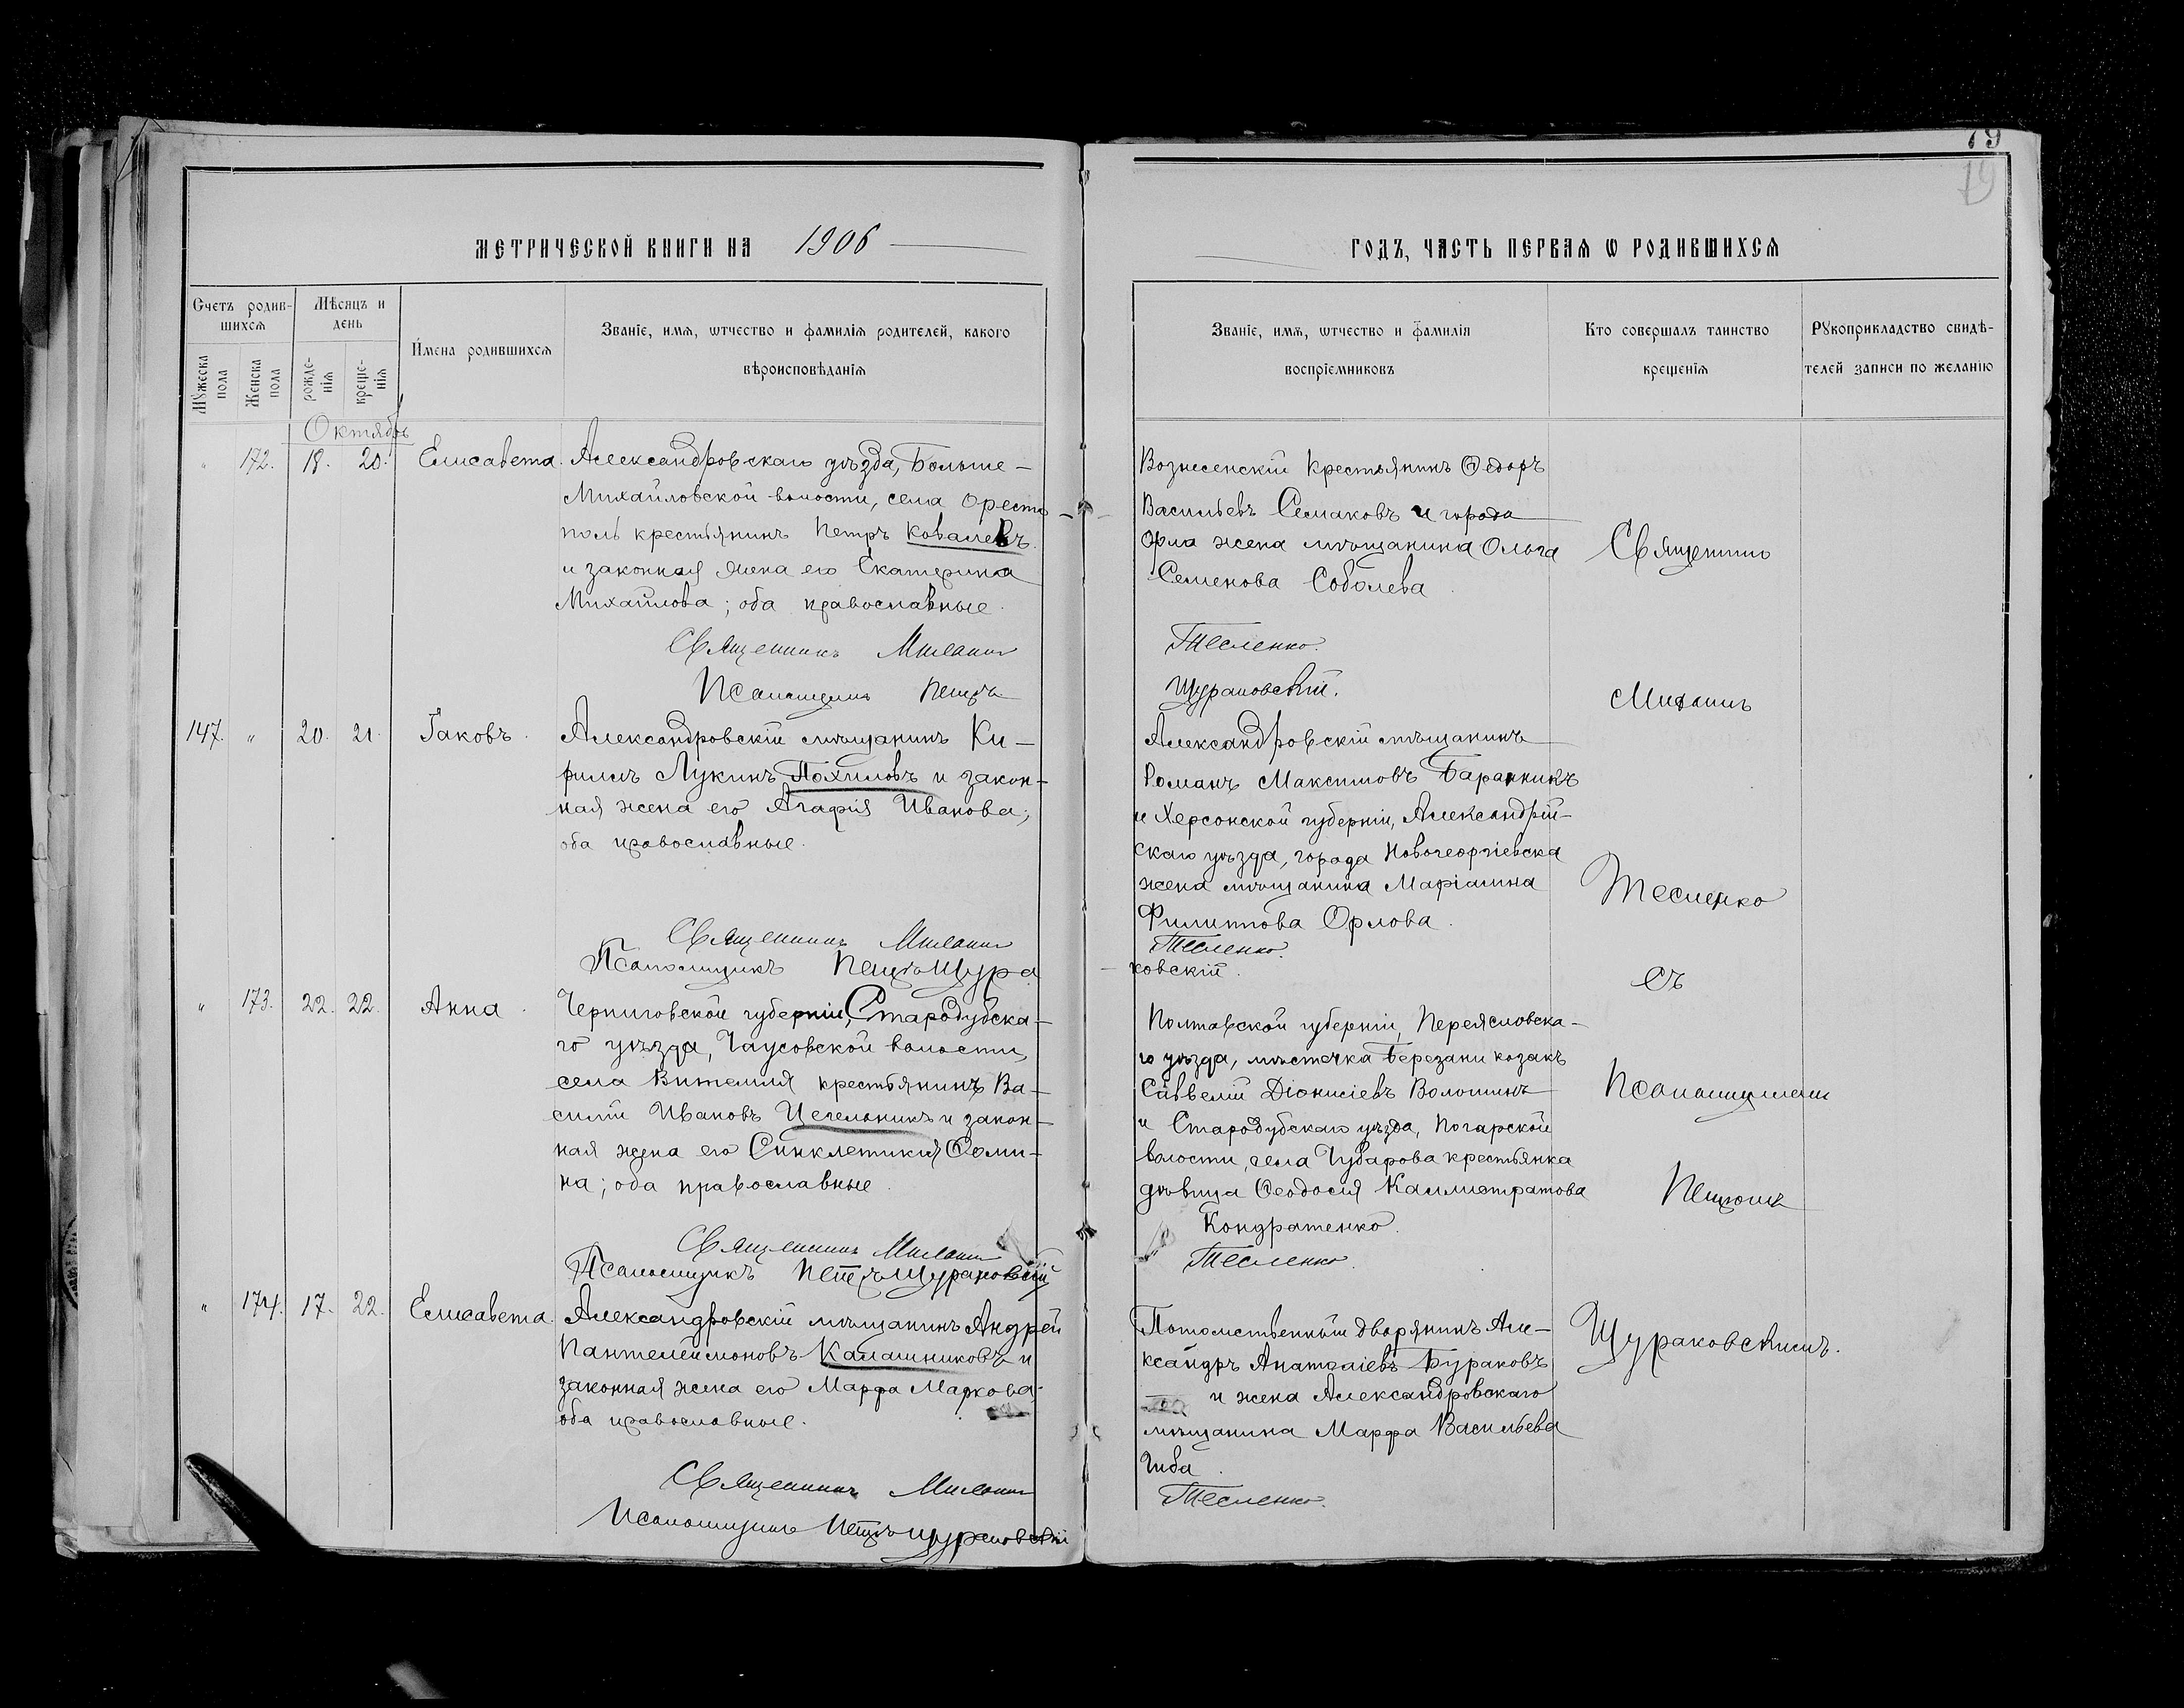 79
79
МЕТРИЧЕСКОЙ КНИГИ НА 1906
ГОДЪ, ЧАСТЬ ПЕРВАЯ Ѡ РОДИВШИХСЯ
Счетъ родив-
шихся
Мѣсяцъ и
день
Мужеска
пола
Женска
пола
рожде-
нія
креще-
нія
Имена родившихся
Званіе, имя, ѡтчество и фамилія родителей, какого
вѣроисповѣданія
Званіе, имя, ѡтчество и фамилія
воспріемниковъ
Кто совершалъ таинство
крещенія
Рукоприкладство свидѣ-
телей записи по желанію
Октябрь
" 172. 18. 20. Елисавета. Александровскаго уѣзда, Больше-
Михайловской волости, села Оресто
поль крестьянинъ Петръ Ковалевъ
и законная жена его Екатерина
Михайлова; оба православные.
Священникъ Михаилъ
Псаломщикъ Петръ
Вознесенскій крестьянинъ Ѳедоръ
Васильевъ Семаковъ и города
Орла жена мѣщанина Ольга
Семенова Соболева.
Тесленко.
Щураковскій.
147. " 20. 21. Іаковъ. Александровскій мѣщанинъ Ки-
риллъ Лукинъ Похиловъ и закон-
ная жена его Агафія Иванова;
оба православные.
Священникъ Михаилъ
Псаломщикъ Петръ Щура
Александровскій мѣщанинъ
Романъ Максимовъ Баранникъ
и Херсонской губерніи, Александрій-
скаго уѣзда, города Новогеоргіевска
жена мѣщанина Маріамна
Филиппова Орлова.
Тесленко.
ковскій.
" 173. 22. 22. Анна. Черниговской губерніи, Стародубска-
го уѣзда, Чаусовской волости,
села Витемля крестьянинъ Ва-
силій Ивановъ Цегельникъ и закон-
ная жена его Синклетикія Ѳоми-
на; оба православные.
Священникъ Михаилъ
Псаломщикъ Петръ Щураковскій
Полтавской губерніи, Переясловска-
го уѣзда, мѣстечка Березани козакъ
Савелій Діонисіевъ Волошинъ
и Стародубскаго уѣзда, Погарской
волости, села Чубарова крестьянка
дѣвица Ѳеодосія Каллистратова
Кондратенко.
Тесленко.
" 174. 17. 22. Елисавета. Александровскій мѣщанинъ Андрей
Пантелеимоновъ Калашниковъ и
законная жена его Марфа Маркова;
оба православные.
Священникъ Михаилъ
Псаломщикъ Петръ Щураковскій
Потомственный дворянинъ Але-
ксандръ Анатоліевъ Бураковъ
и жена Александровскаго
мѣщанина Марфа Васильева
Тесленко.
Священникъ
Михаилъ
Тесленко
съ
Псаломщикомъ
Петромъ
Щураковскимъ.